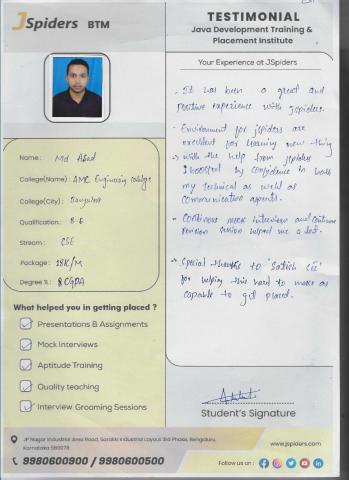 JSpiders BTM
TESTIMONIAL
Java Development Training &
Placement Institute
Your Experience at JSpiders
- It has been a great and
positive experience with jspiders.
- Environment for jspiders are
excellent for learning new thing
- with the help from jspiders
I boosted my confidence in both
my technical as well as
communication aspects.
- Continous mock interview and
revision session helped me a lot.
- Special thanks to "Satish
for helping this hard to make as
capable to get placed.
Name : Md Asad
College(Name) : AMC Engineering college
College(City) : Bangalore
Qualification : B.E
Stream : CSE
Package : 18K/M
Degree % : 8 CGPA
What helped you in getting placed ?
Presentations & Assignments
Mock Interviews
Aptitude Training
Quality teaching
Interview Grooming Sessions
Student's Signature
JP Nagar Industrial Area Road, Sarakki Industrial Layout 3rd Phase, Bengaluru,
Karnataka 560078
9980600900 / 9980600500
www.jspiders.com
Follow us on :